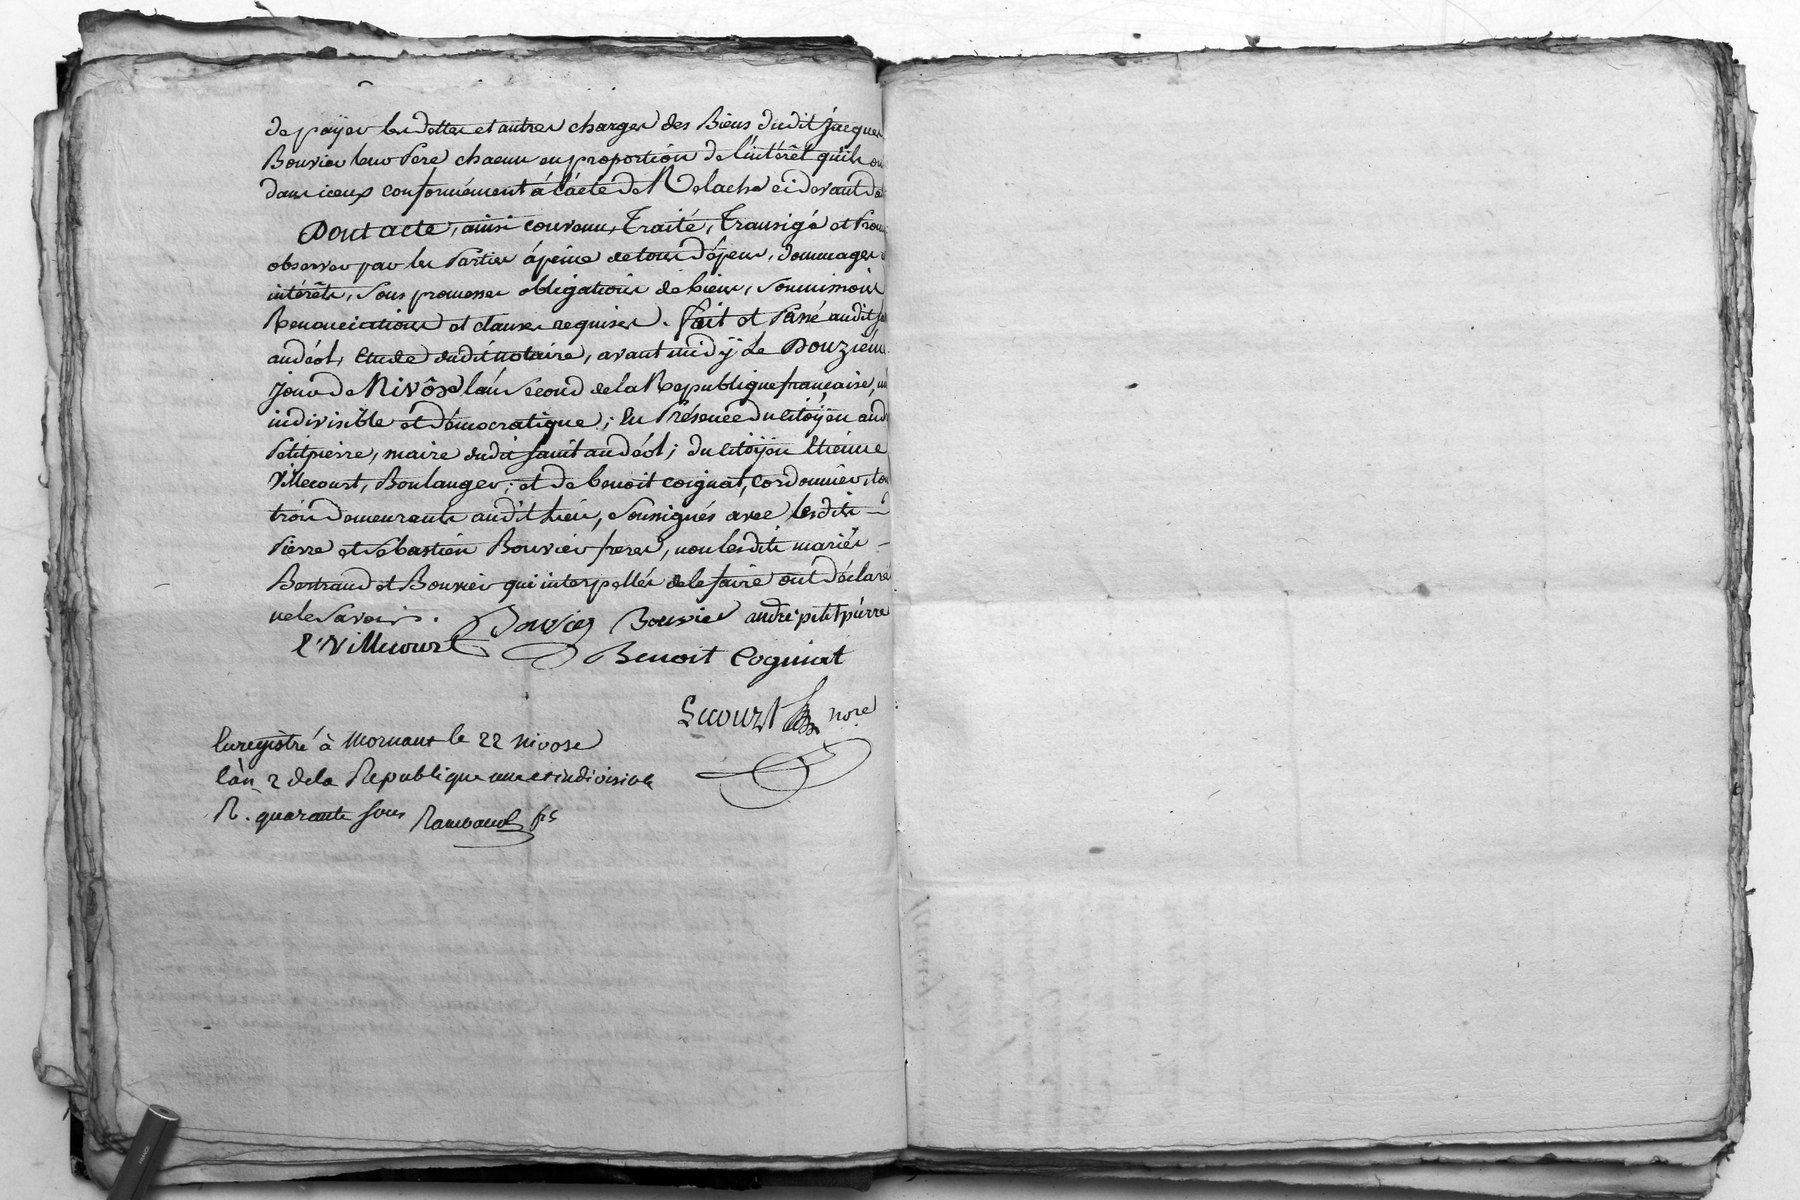 de payer les dettes et autres charges des Biens dudit Jacques
Bouvier leur Pere chacun en proportion de l'intérêt qu'ils ont
dans iceux conformément à l'acte de Relache ci devant
Dont acte, ainsi convenu, Traité, Transigé et Promis
observer par les Parties à peine de tous dépens, dommages
intérêts, sous promesses obligations de biens, soumissions
Renonciations et clauses requises. fait et Passé audit
andéol, Etude dudit notaire, avant midÿ Le Douzième
jour de Nivôse l'an second de la République française, une
indivisible et démocratique; En Présence du Citoÿen andré
Petitpierre, maire dudit saint andéol; du Citoÿen Etienne
Villecourt, Boulanger; et de benoit coignat, cordonnier, tous
trois demeurants audit Lieu, soussignés avec lesdits
Pierre et sébastien Bouvier freres, non lesdits mariés
Bertrand et Bouvier qui interpellés de le faire ont déclaré
ne le savoir.
Bouvier Bouvier andré petitpierre
E. Villecourt
Benoit Cogniat
Lecourt nore
Enregistré à Mornant le 22 nivose
l'an 2 de la Republique une et indivisible
R. quarante sous
FRANCE